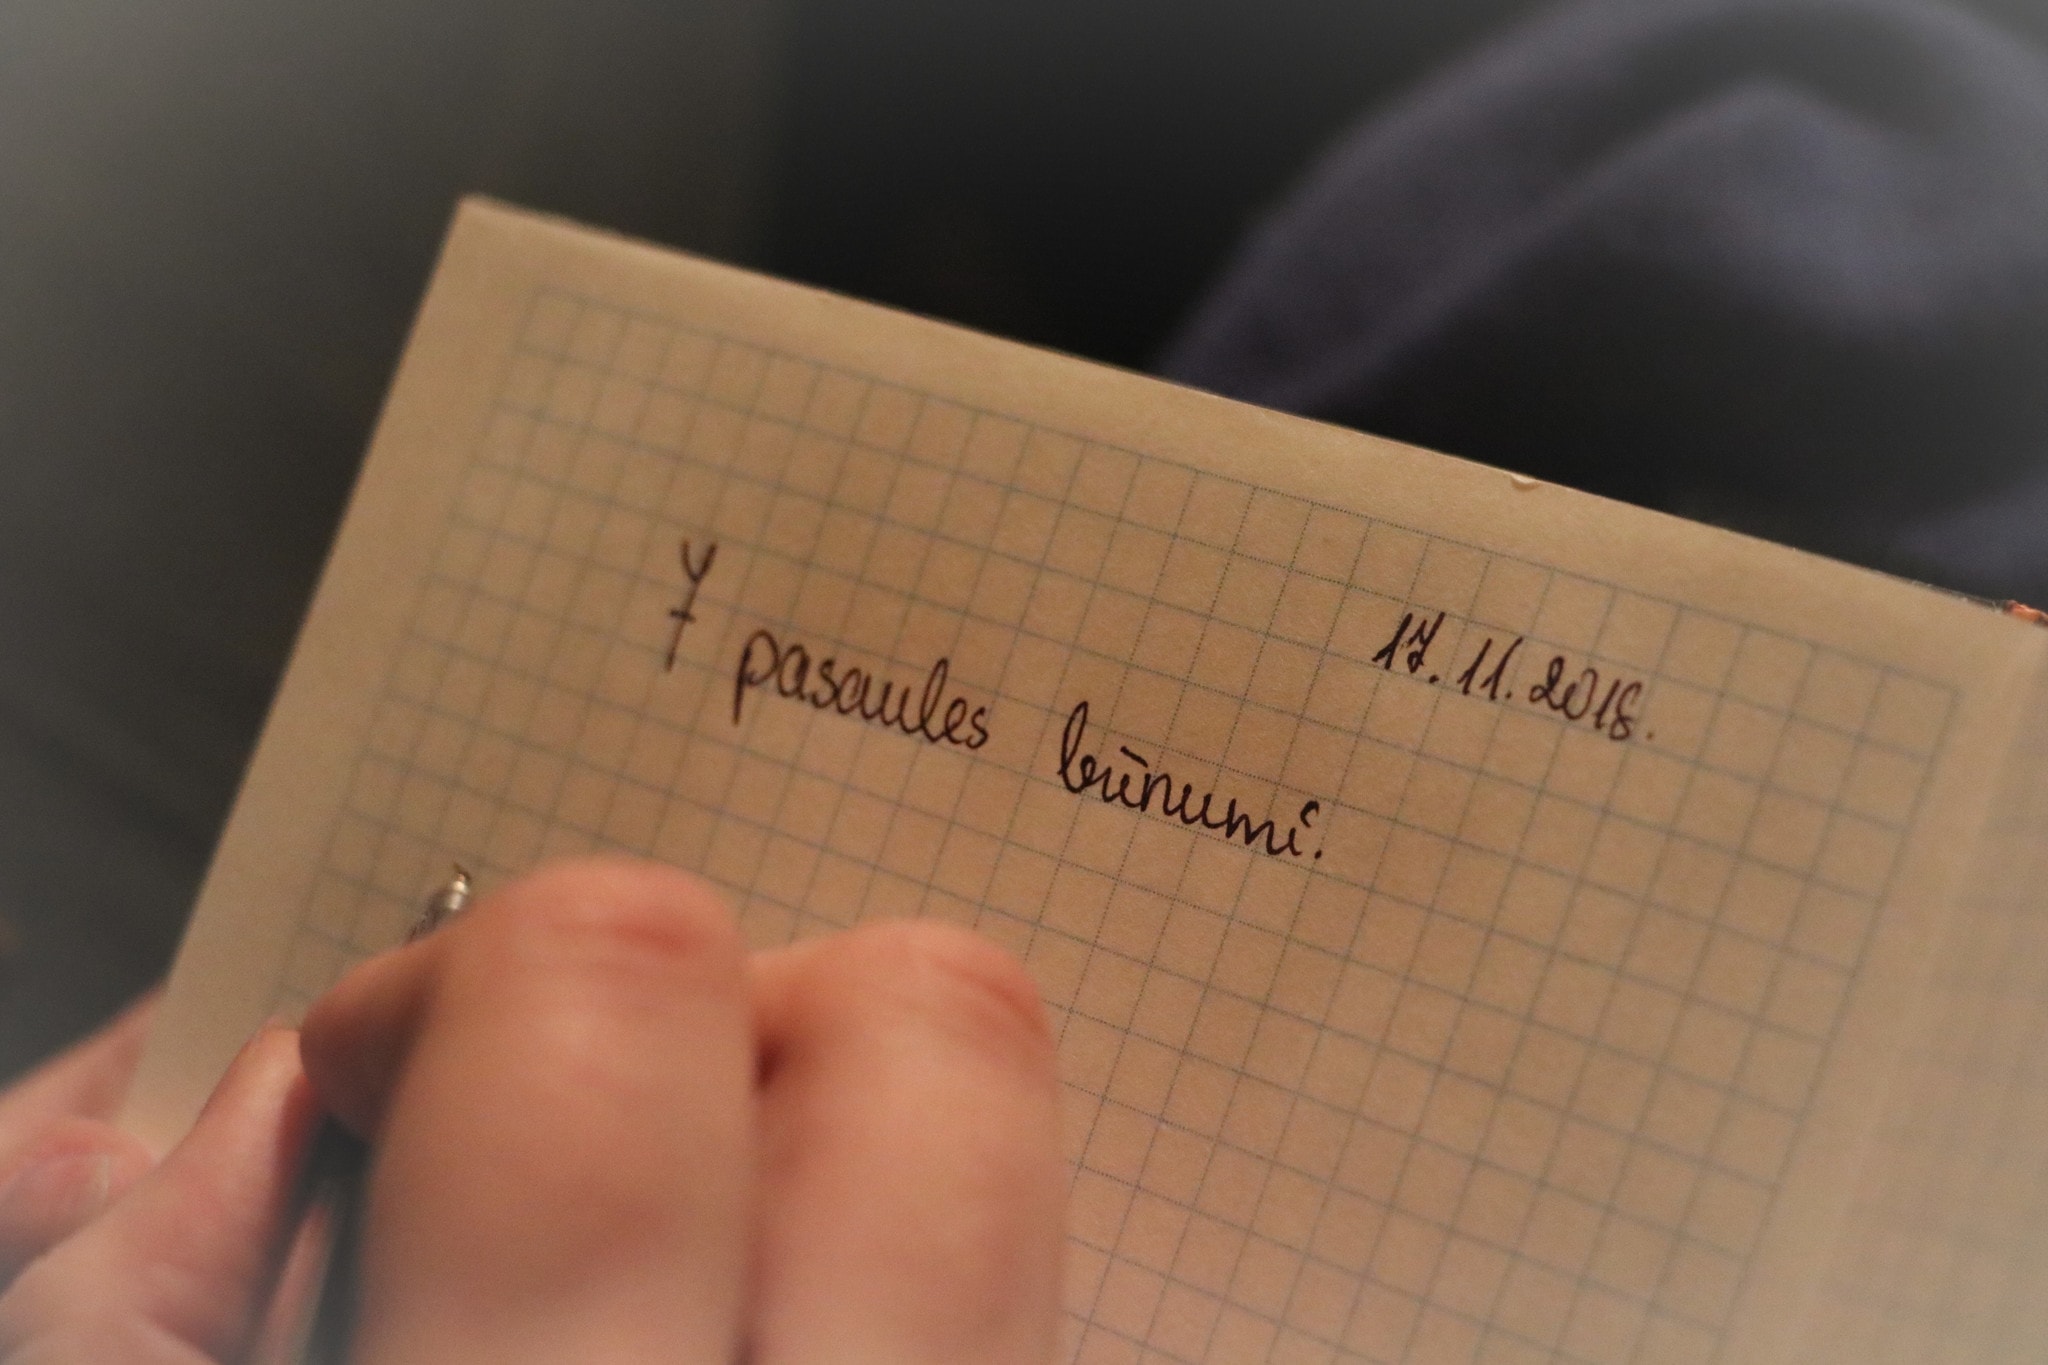 17.11.2018.
7 pasaules būnumi.